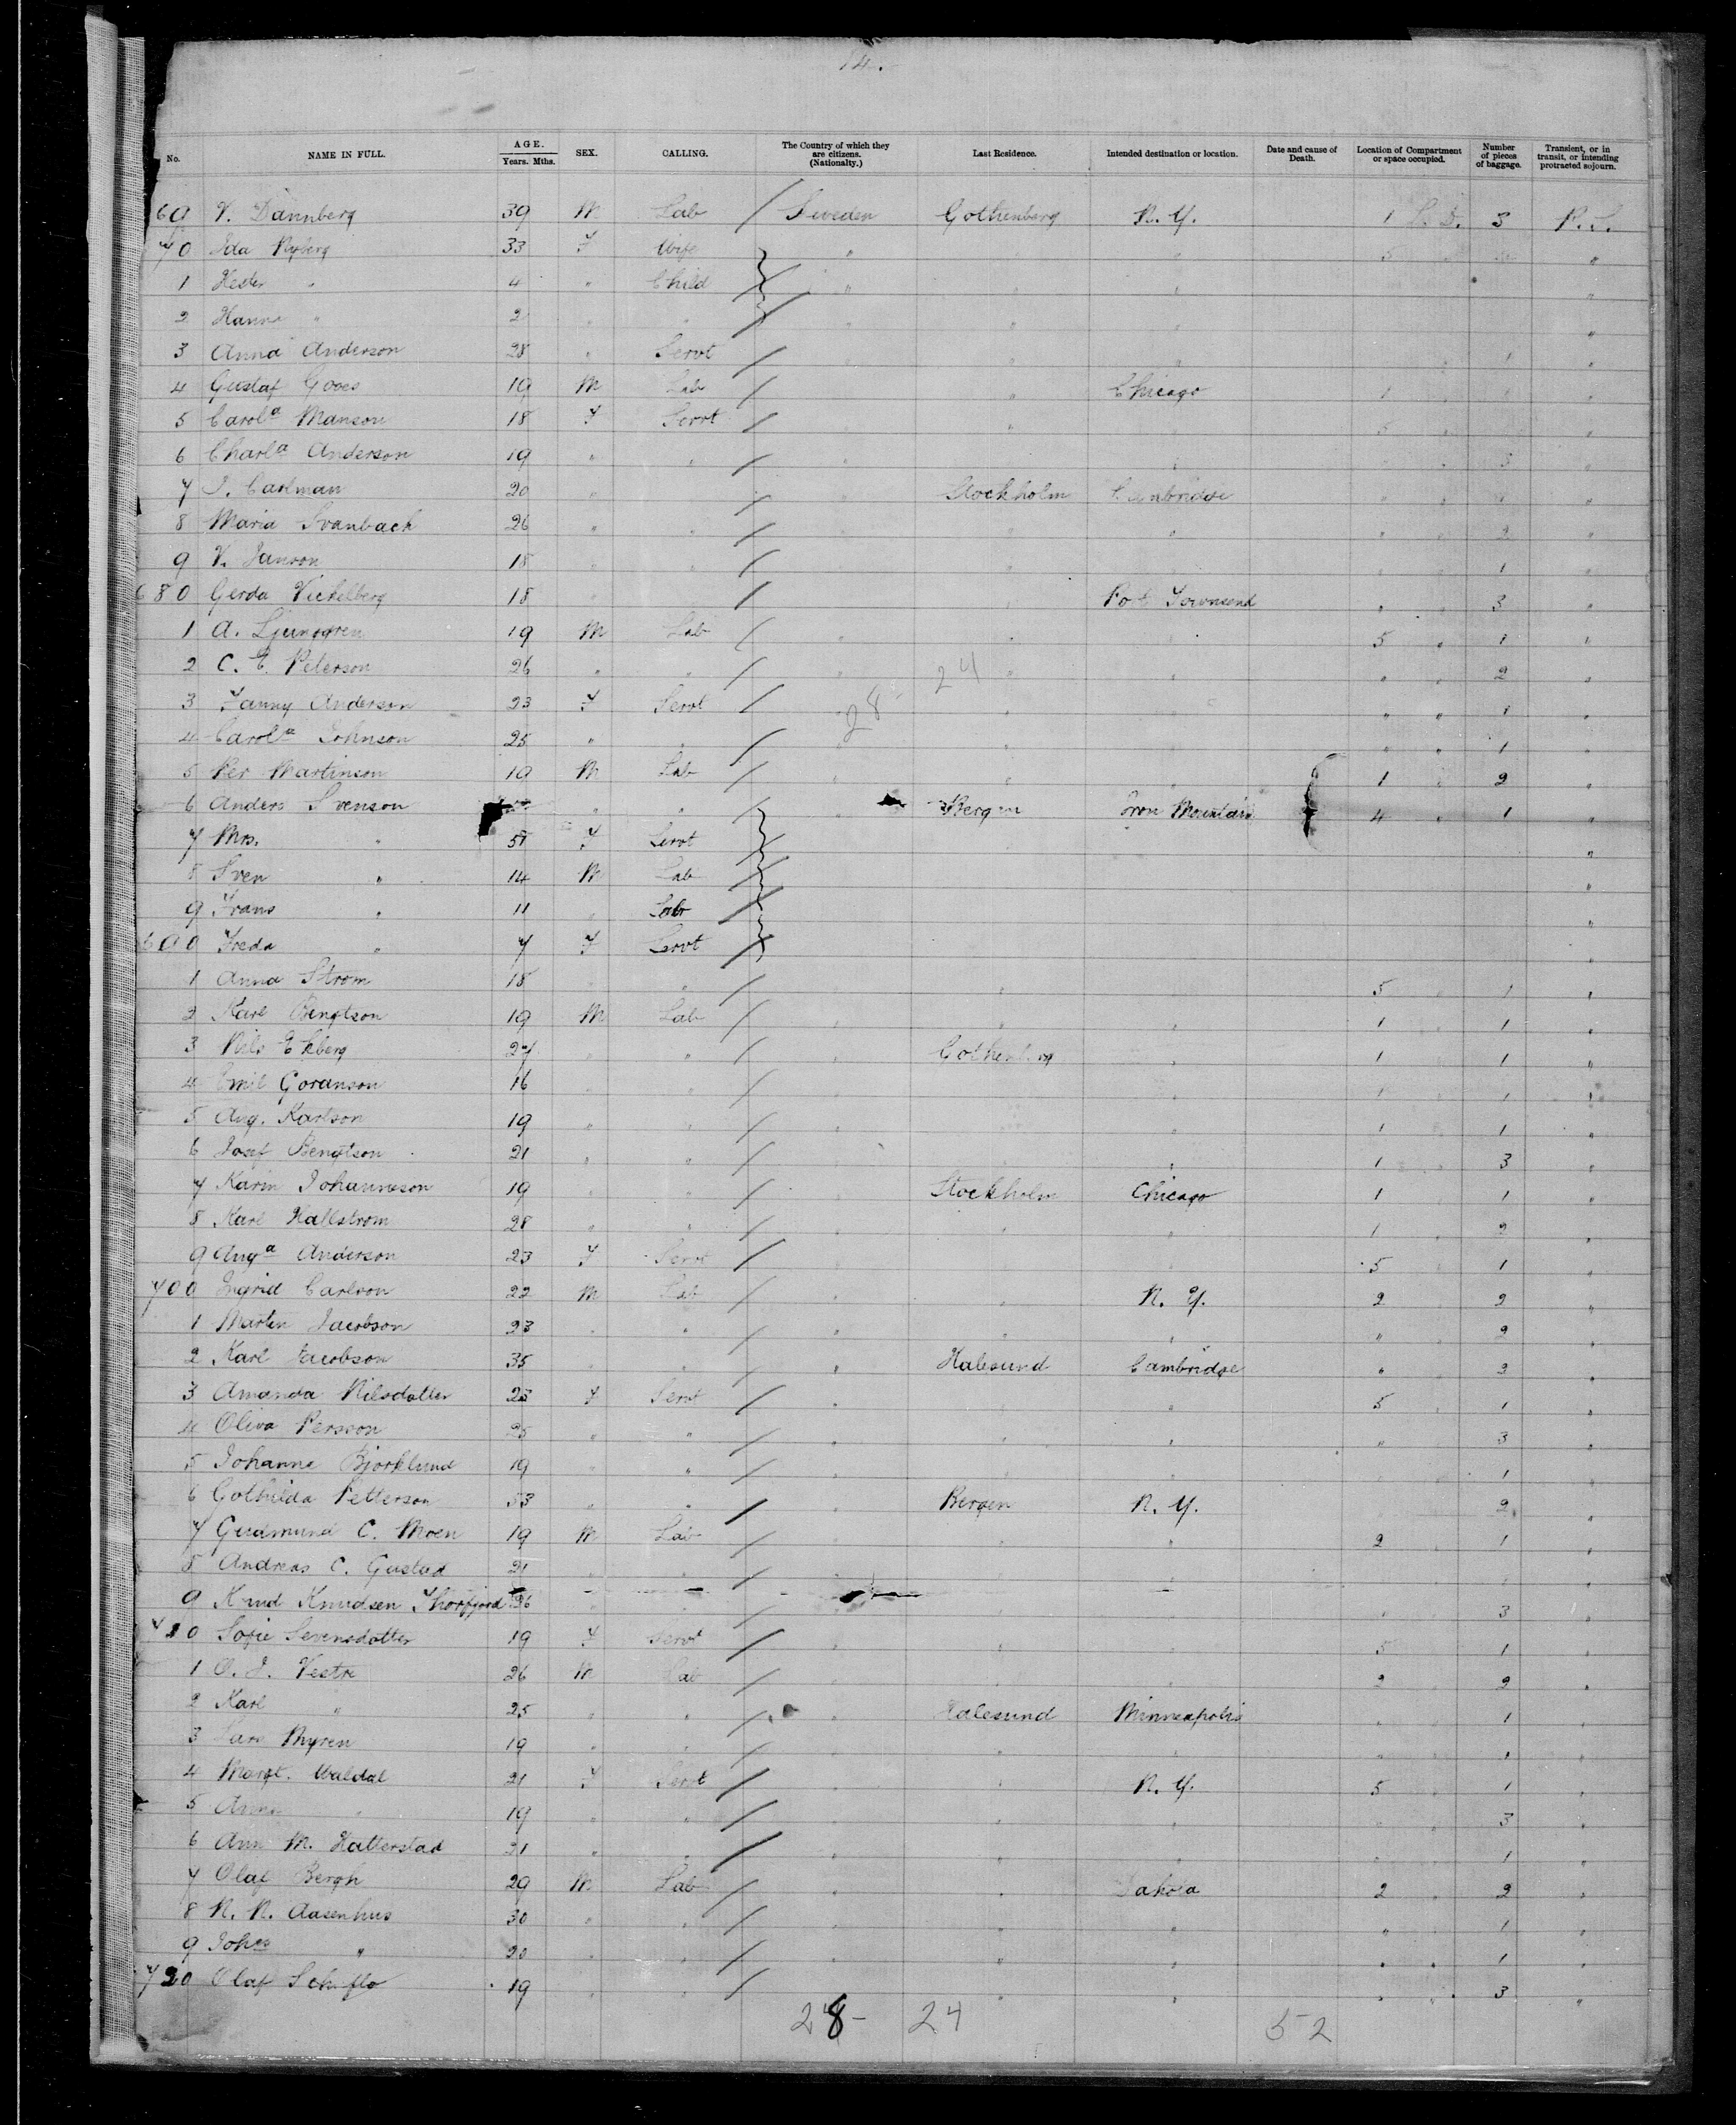 14.
No. NAME IN FULL. AGE. Years. Mths. SEX. CALLING. The Country of which they are citizens. (Nationalty.) Last Residence. Intended destination or location. Date and cause of Death. Location of Compartment or space occupied. Number of pieces of baggage. Transient, or in transit, or intending protracted sojourn.
69 V. Dannberg 39 M Lab / Sweden Gothenberg N. Y. 1 3 P.S.
70 Ida Nyberg 33 F Wife " " 5 "
1 Hester " 4 " Child / " " " "
2 Hanna " 2 " " / " " " "
3 Anna Anderson 28 " Servt / " " " 1 "
4 Gustaf Goos 19 M Lab / " " Chicago 1 1 "
5 Carolª Manson 18 F Servt / " " " 5 "
6 Charlª Anderson 19 " " / " " 3 "
7 J. Carlman 20 " / " Stockholm Cambridge " "
8 Maria Svanbach 26 " " / " " " " 2 "
9 V. Janson 18 " " / " " 1 "
680 Gerda Vickelberg 18 " / Port Townsend " 3 "
1 A. Ljungren 19 M Lab / " " " 5 " 1 "
2 C. E. Peterson 26 " " / 24 " " " " 2 "
3 Fanny Anderson 23 F Servt / 28 " " " " 1 "
4 Carolª Johnson 25 " " / " " " " " 1 "
5 Per Martinson 19 M Lab / " " " 1 " 2 "
6 Anders Svenson " " / " Bergen Iron Mountain 4 " 1 "
7 Mrs. " 51 F Servt / "
8 Sven " 14 M Lab / "
9 Frans " 11 " Lab / "
690 Freda " 7 F Servt / "
1 Anna Strom 18 " " / " " " 5 " 1 "
2 Karl Bengtson 19 M Lab / " " " 1 " 1 "
3 Nils Ekberg 27 " " / " Gothenberg " 1 " 1 "
4 Emil Goranson 16 " / " " 1 1 "
5 Aug. Karlson 19 " " / " " " 1 " 1 "
6 Josef Bengtson 21 " " / " " " 1 " 3 "
7 Karin Johanneson 19 " " / " Stockholm Chicago 1 " 1 "
8 Karl Hallstrom 28 " " / " " " 1 " 2 "
9 Augª Anderson 23 F Servt / " " 5 " 1 "
700 Ingrid Carlson 22 M Lab / " " N. Y. 2 " 2 "
1 Marten Jacobson 23 " " / " " " " " 2 "
2 Karl Jacobson 35 " " / " Halesund Cambridge " 2 "
3 Amanda Nilsdotter 23 F Servt / " " " 5 " 1 "
4 Oliva Persson 25 " " / " " " " 3 "
5 Johanna Bjorklund 19 " " / " " " 1 "
6 Gothilda Petterson 53 " " / " Bergen N. Y. 2 "
7 Gudmund C. Moen 19 M Lab / " " " 2 1 "
8 Andreas C. Gustad 21 " " / " " " "
9 Knud Knudsen Thorfjord 36 " " / " 3 "
710 Sofie Sevensdotter 19 F Servt / " " " 5 1 "
1 O. J. Vestre 26 M Lab / " " " 2 2 "
2 Karl " 25 " " / " Halesund Minneapolis " 1 "
3 Lars Myren 19 " " / " " " " 1 "
4 Margt. Ualdal 21 F Servt / " " N. Y. 5 1 "
5 Anna " 19 " " / " " " " 3 "
6 Ann M. Hatterstad 21 " " / " " " " 1 "
7 Olaf Bergh 29 M Lab / " " Dakota 2 " 2 "
8 N. N. Aasenhus 30 " " / " " " " " 1 "
9 Johes " 20 " " / " " " " " 1 "
720 Olaf Schiflo 19 " " / " " " " " 3 "
28- 24 52